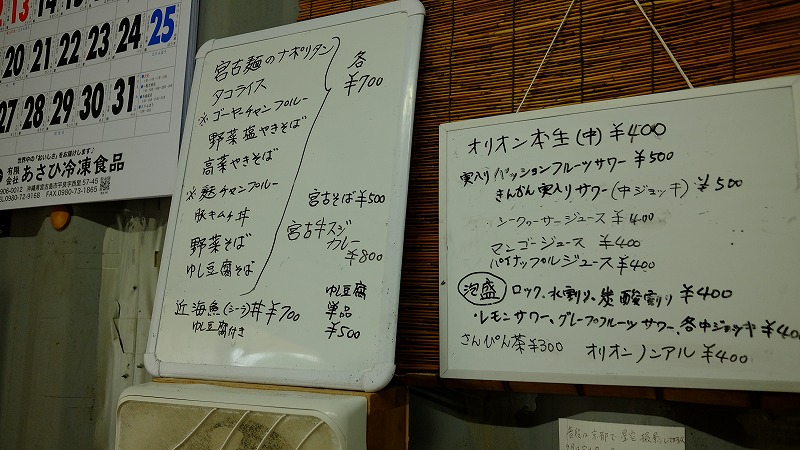 13
18
20 21 22 23 24 25
27 28 29 30 31
世界中の「おいしさ」をお届けします♪
有限会社 あさひ冷凍食品
906-0012 沖縄県宮古島市平良字西里 57-45
TEL0980-72-9168 FAX 0980-73-1865
宮古麺のナポリタン
タコライス
※ゴーヤーチャンプルー
野菜塩やきそば
高菜やきそば
※麩チャンプルー
豚キムチ丼
野菜そば
ゆし豆腐そば
各
¥700
宮古そば ¥500
宮古牛スジ
カレー
¥800
近海魚(シージ)丼 ¥700
ゆし豆腐付き
ゆし豆腐
単品
¥500
オリオン本生(中) ¥400
実入りパッションフルーツサワー ¥500
きんかん実入りサワー(中ジョッキ) ¥500
シークヮーサージュース ¥400
マンゴージュース ¥400
パイナップルジュース ¥400
泡盛 ロック、水割り、炭酸割り ¥400
・レモンサワー、グレープフルーツサワー、各中ジョッキ ¥400
さんぴん茶 ¥300 オリオンノンアル ¥400